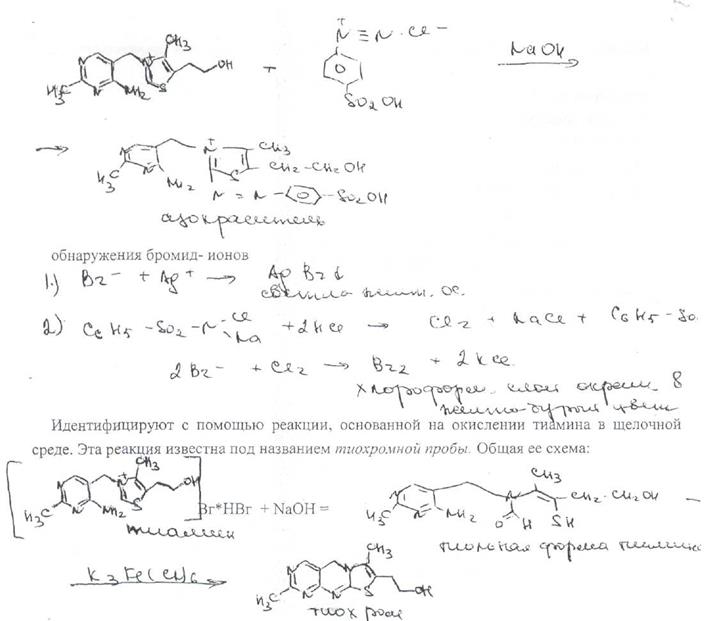 CH₃
N⁺ ≡ N · Cl⁻
NaOH
N N⁺ OH
+
H₃C N NH₂ S
SO₂OH
→
N N⁺ CH₃
CH₂-CH₂OH
H₃C N NH₂ S
N = N SO₂OH
азокраситель
обнаружения бромид- ионов
1.) Br⁻ + Ag⁺ → AgBr↓
светло желт. ос.
2) C6H5 - SO₂ - N Cl Na + 2HCl → Cl₂ + NaCl + C6H5 - SO
2Br⁻ + Cl₂ → Br₂ + 2KCl
хлороформ. слой окраш. в
желто-бурый цвет
Идентифицируют с помощью реакции, основанной на окислении тиамина в щелочной
среде. Эта реакция известна под названием тиохромной пробы. Общая ее схема:
CH₃ CH₃
N N⁺ OH N N CH₂·CH₂OH
H₃C N NH₂ S Br*HBr + NaOH = H₃C N NH₂ O H SH
тиамин тиольная форма тиамина
K₃Fe(CN)₆ CH₃
N N N OH
H₃C N N S
тиохром